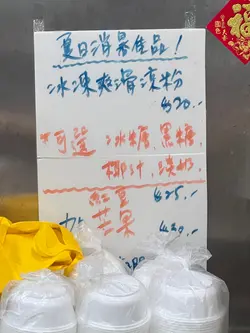 夏日消暑佳品!
冰凍爽滑涼粉
$20.-
*可選 冰糖,黑糖,
椰汁,淡奶
紅豆 $25.-
加 芒果 $30.-